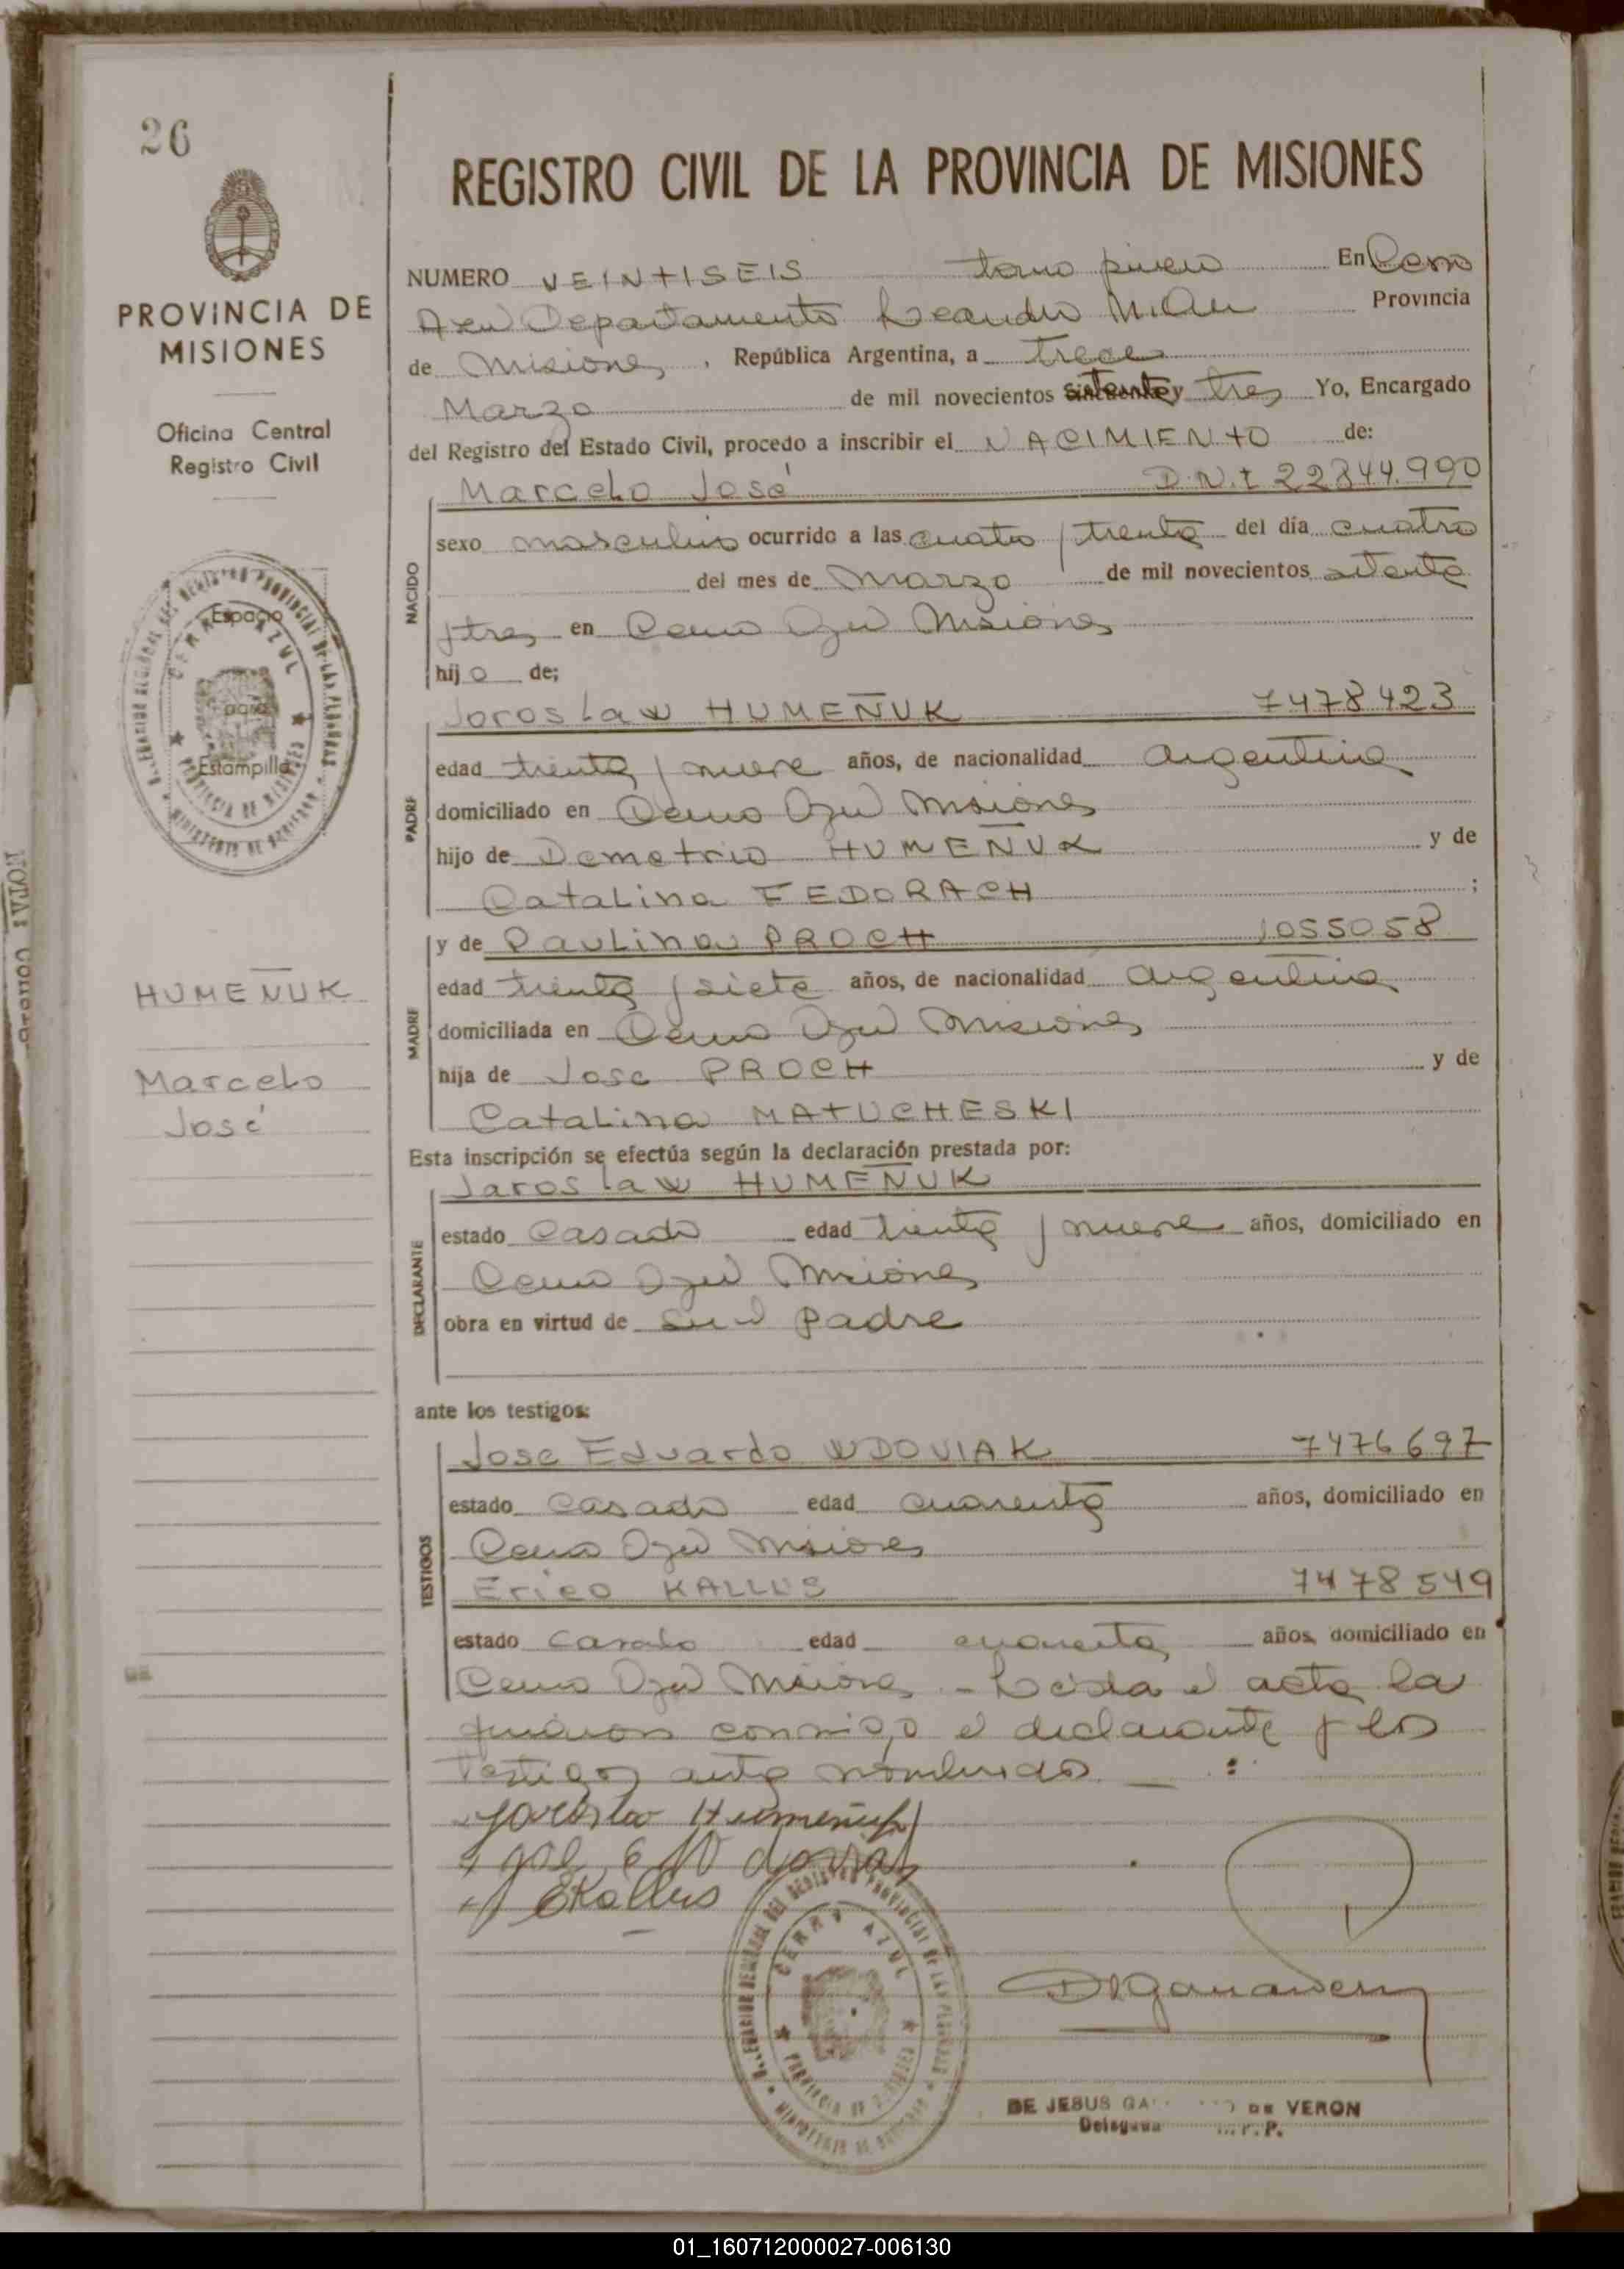 26
PROVINCIA DE
MISIONES
Oficina Central
Registro Civil
Espacio
para
Estampilla
CERRO AZUL
PROVINCIA DE MISIONES
HUMEÑUK
Marcelo
José
REGISTRO CIVIL DE LA PROVINCIA DE MISIONES
NUMERO VEINTISEIS tomo primero En Cerro
Azul Departamento Leandro N. Alem Provincia
de Misiones, República Argentina, a trece
Marzo de mil novecientos setenta y tres Yo, Encargado
del Registro del Estado Civil, procedo a inscribir el NACIMIENTO de:
Marcelo José D.N.I 22844.990
NACIDO
sexo masculino ocurrido a las cuatro y treinta del día cuatro
del mes de Marzo de mil novecientos setenta
y tres en Cerro Azul Misiones
hijo de;
PADRE
Jaroslaw HUMEÑUK 7478423
edad treinta y nueve años, de nacionalidad Argentina
domiciliado en Cerro Azul Misiones
hijo de Demetrio HUMEÑUK y de
Catalina FEDORACH ;
MADRE
y de Paulina PROCH 1055058
edad treinta y siete años, de nacionalidad Argentina
domiciliada en Cerro Azul Misiones
hija de Jose PROCH y de
Catalina MATUCHESKI
Esta inscripción se efectúa según la declaración prestada por:
DECLARANTE
Jaroslaw HUMEÑUK
estado Casado edad treinta y nueve años, domiciliado en
Cerro Azul Misiones
obra en virtud de ser el Padre
ante los testigos:
TESTIGOS
Jose Eduardo WDOVIAK 7476697
estado Casado edad cuarenta años, domiciliado en
Cerro Azul Misiones
Erico KALLUS 7478549
estado Casado edad cuarenta años, domiciliado en
Cerro Azul Misiones - Leida el acta la
firmaron conmigo el declarante y los
testigos antes nombrados
Humeñuk
EKallus
CERRO AZUL
PROVINCIA DE MISIONES
DE JESUS GA DE VERON
Delegada
01_160712000027-006130